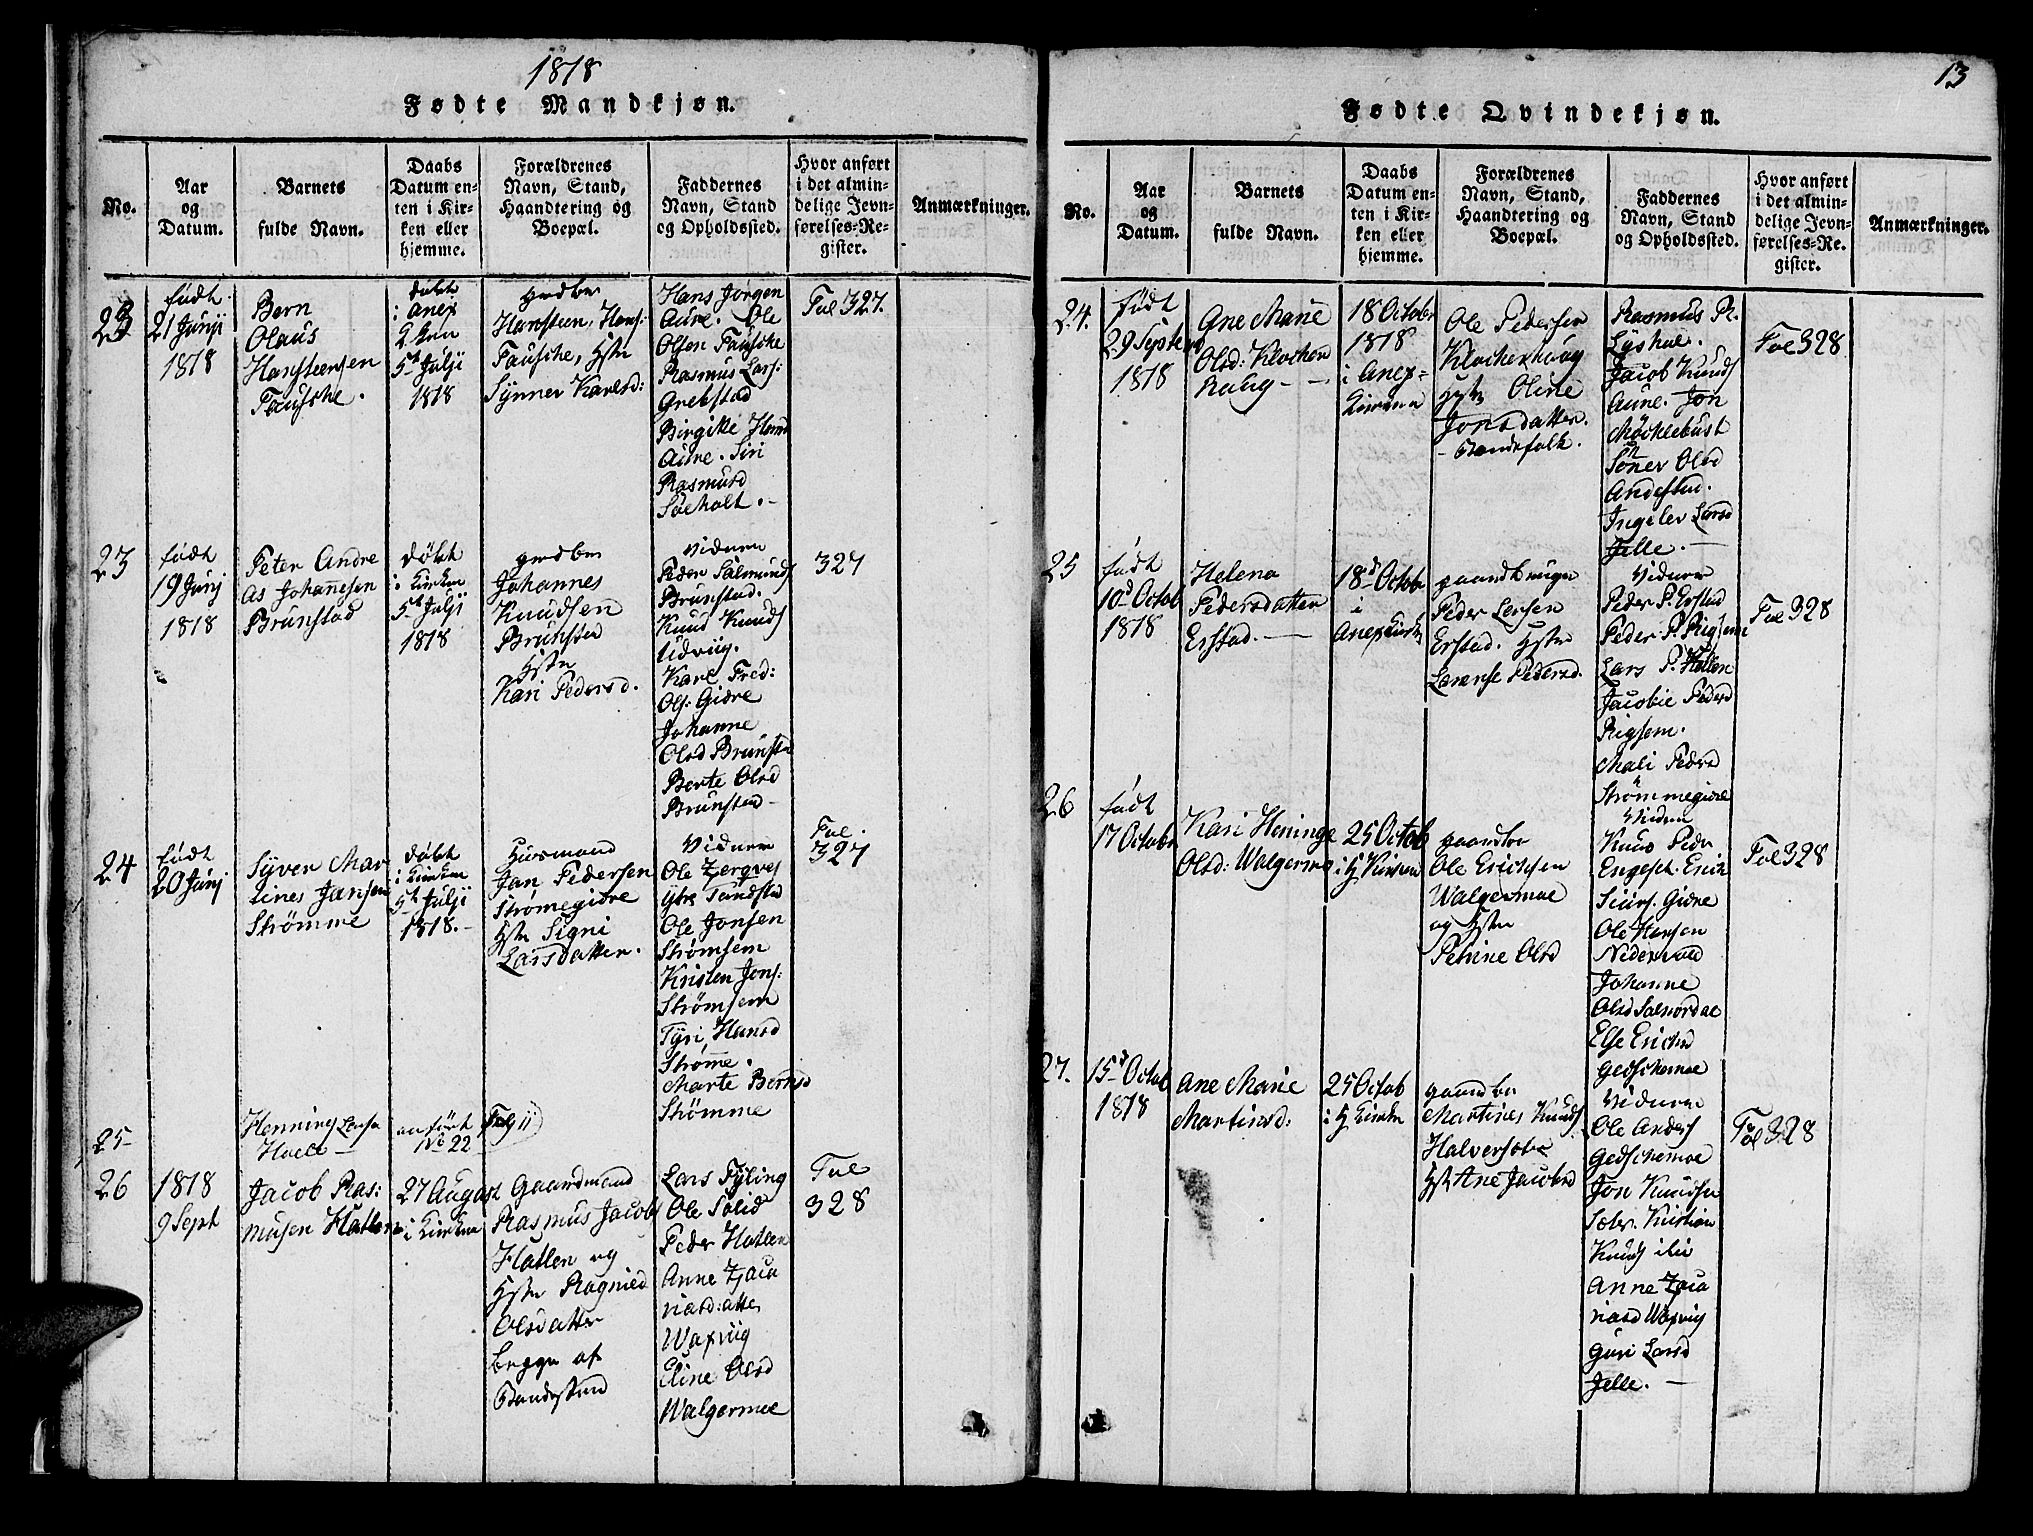 1818
Fødte Mandkjøn.
No.
Aar
og
Datum.
Barnets
fulde Navn.
Daabs
Datum en-
ten i Kir-
ken eller
hjemme.
Forældrenes
Navn, Stand,
Haandtering og
Boepæl.
Faddernes
Navn, Stand
og Opholdssted.
Hvor anført
i det almin-
delige Jevn-
førelses-Re-
gister.
Anmærkninger.
23
født
21 Junji
1818
Bern
Olaus
Hansteensen
Fausche.
døbt
i anex
5t Julji
1818
Hansteen, Hans:
Fausche, Hstr
Synnev Karlsd:
Hans Jørgen
Aure. Ole
Olsen Fausche
Rasmus Lars:
Grebstad
Birgitte Hansd
Aure. Siri
Rasmusd
Søeholt.
Fol 327.
23
født
19 Junj
1818
Peter Andre
as Johannesen
Brunstad
døbt
i Kirken
5t Julji
1818
Johannes
Knudsen
Brunstad
Hstr
Kari Pedersd.
Vidner
Peder Salmunds
Brunstad.
Knud Knuds
Udviig.
Karl Fred:
Ols: Giære
Johanne
Olsd Brunstad
Berte Olsd
Brunstad
327
24
født
20 Junj
Syver Mar
tines Jansen
Strømme
døbt
i Kirken
5t Julji
1818.
Huusmand
Jan Pedersen
Strømegiære
Hstr Signi
Larsdatter.
Vidner
Ole
Tandstad
Ole Jonsen
Strømsem
Kristen Jons:
Strømsem
Tyri Hansd
Strømme.
Marte Berntsd
Strømme
Fol.
327
25
Henning Larsen
Hoele
anført
No 22
Fol 11
26
1818
9 Sept
Jacob Ras:
musen Hatlen
27 August
i Kirken
Gaardmand
Rasmus Jacobs
Hatlen og
Hstr Ragnild
Olsdatter
begge af
Bondestand
Lars Fyling
Ole Solid
Peder Hatlen
Anne Zaca
riasd:atter
Waxviig
Eline Olsd
Walgermoe
Fol
328
13
Fødte Qvindekjøn.
No.
Aar
og
Datum.
Barnets
fulde Navn.
Daabs
Datum en-
ten i Kir-
ken eller
hjemme.
Forældrenes
Navn, Stand,
Haandtering og
Boepæl.
Faddernes
Navn, Stand
og Opholdssted.
Hvor anført
i det almin-
delige Jevn-
førelses-Re-
gister.
Anmærkninger.
24.
født
29 Septemb
1818
Ane Marie
Olsd: Klocker
haug
18 Octobr
1818
i Anex-
Kirken
Ole Pedersen
Klockerhaug
Hstr Oline
Jonsdatter.
Bondefolk.
Rasmus R.
Lyshol.
Jacob Knuds
Aure. Jon
Møcklebust
Sønnev Olsd
Andestad.
Ingelev Larsd
Jelle.
Fol 328
25
født
10d Octob
1818
Helena
Pedersdatter
Erstad.
18d Octobr
i
Anexkirken
gaardbruger
Peder Larsen
Erstad. Hstr
Larense Pedersd.
Vidner
Peder P. Erstad
Peder P. Rigsem
Lars P. Hatlen
Jacobie Pedersd
Rigsem.
Mali Pedersd
Strømmegiære
Fol 328
26
født
17 Octobr
Kari Heninge
Olsd: Walgermo
25 Octob
i H Kirken
gaardbr
Ole Erichsen
Walgermoe
og Hstr
Petrine Olsd
Vidner
Knud Peder
Engeset. Erich
Siurs. Giære
Ole Hansen
Nedervold
Johanne
Olsd Solnordal
Else Erichsd
Gedschemoe
Fol 328
27.
15d Octob
1818
Ane Marie
Martinsd:
25 Octob
i H Kirken
gaardbr
Martines Knuds
Halversæter
Hstr Ane Jacobsd
Vidner
Ole Anders
Gedschemoe
Jon Knudsen
Sæter. Kristian
Knuds
Anne Zaca
riasd Waxviig
Guri Larsd
Jelle.
Fol 328